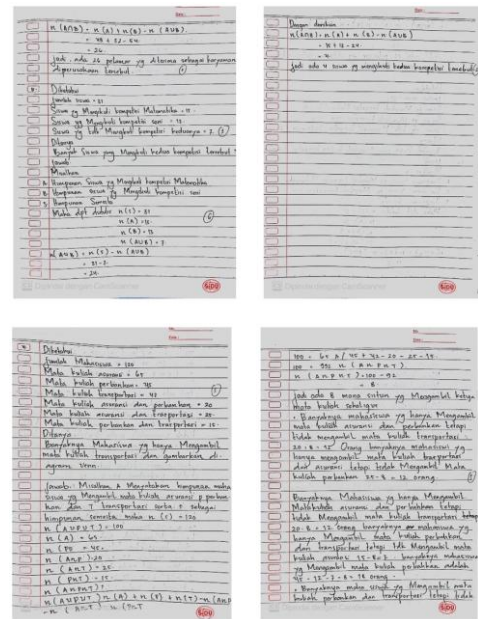 n (A∩B) = n (A) + n (B) - n (AUB)
= 48 + 32 - 54
= 26.
Jadi, ada 26 pelamar yg diterima sebagai karyawan
diperusahaan tersebut.
Diketahui
Jumlah siswa = 31
Siswa yg Mengikuti kompetisi Matematika = 15
Siswa yg Mengikuti kompetisi seni = 13
Siswa yg tdk Mengikuti kompetisi keduanya = 7
Ditanya
Banyak siswa yang Mengikuti kedua kompetisi tersebut
Jawab
Misalkan
A Himpunan Siswa yg Mengikuti kompetisi Matematika
B Himpunan siswa yg Mengikuti kompetisi seni
S Himpunan Semesta
Maka dpt didata n (S) = 31
n (A) = 15
n (B) = 13
n (AUB) = 7
n (AUB) = n (S) - n (AUB)
= 31 - 7
= 24.
Dipindai dengan CamScanner
SIDU
Dengan demikian
n(A∩B) = n (A) + n (B) - n (AUB)
= 15 + 13 - 24
= 4
Jadi ada 4 siswa yg mengikuti kedua kompetisi tersebut
Dipindai dengan CamScanner
SIDU
Diketahui
Jumlah Mahasiswa = 100
Mata kuliah asuransi = 65
Mata kuliah perbankan = 45
Mata kuliah transportasi = 42
Mata kuliah asuransi dan perbankan = 20
Mata kuliah asuransi dan trasportasi = 25
Mata kuliah perbankan dan trasportasi = 15
Ditanya
Banyaknya Mahasiswa yg hanya Mengambil
mata kuliah transportasi dan gambarkan di
agram venn.
Jawab: Misalkan A Menyatakan himpunan maha
siswa yg Mengambil mata kuliah asuransi p perban
kan dan T transportasi serta S sebagai
himpunan semesta maka n (S) = 100
n (AUPUT) = 100
n (A) = 65
n (P) = 45
n (A∩P) = 20
n (A∩T) = 25
n (P∩T) = 15
n (A∩P∩T) ?
n (AUPUT) n (A) + n (P) + n (T) - n (A∩P)
- n (A∩T) - n (P∩T
SIDU
100 = 65 + 45 + 42 - 20 - 25 - 15
100 = 92 n (A∩P∩T)
n (A∩P∩T) = 100 - 92
= 8.
Jadi ada 8 maha siswa yg Mengambil ketiga
mata kuliah sekaligus
• Banyaknya mahasiswa yg hanya Mengambil
mata kuliah asuransi dan perbankan tetapi
tidak mengambil mata kuliah transportasi
20 - 8 = 12 Orang banyaknya mahasiswa yg
hanya mengambil mata kuliah trasportasi
dan asuransi tetapi tidak Mengambil Mata
kuliah perbankan 25-8 = 12 orang.
Banyaknya Mahasiswa yg hanya Mengambil
Mata kuliah asuransi dan perbankan tetapi
tidak Mengambil mata kuliah transportasi
20-8 = 12 orang banyaknya mahasiswa yg
hanya Mengambil mata kuliah perbankan
dan trasportasi tetapi tdk Mengambil mata
kuliah asuransi 15-8 = 7 banyaknya mahasiswa
yg Mengambil mata kuliah perbankan adalah
45 - 12 - 7 - 8 = 18 orang.
• Banyaknya maha siswa yg Mengambil mata
kuliah perbankan dan transportasi tetapi tidak
SIDU